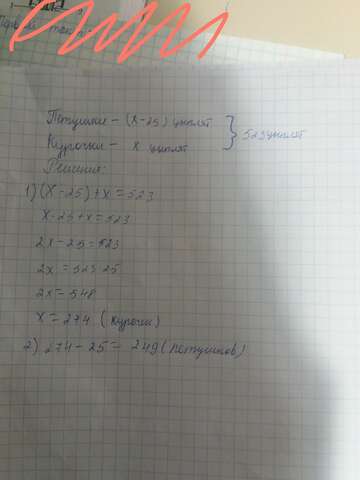 Петушки – (х-25) цыплят
Курочки – х цыплят } 523 цыплят
Решение:
1) (х - 25) + х = 523
х - 25 + х = 523
2х - 25 = 523
2х = 523 25
2х = 548
х = 274 (курочки)
2) 274 - 25 = 249 (петушков)